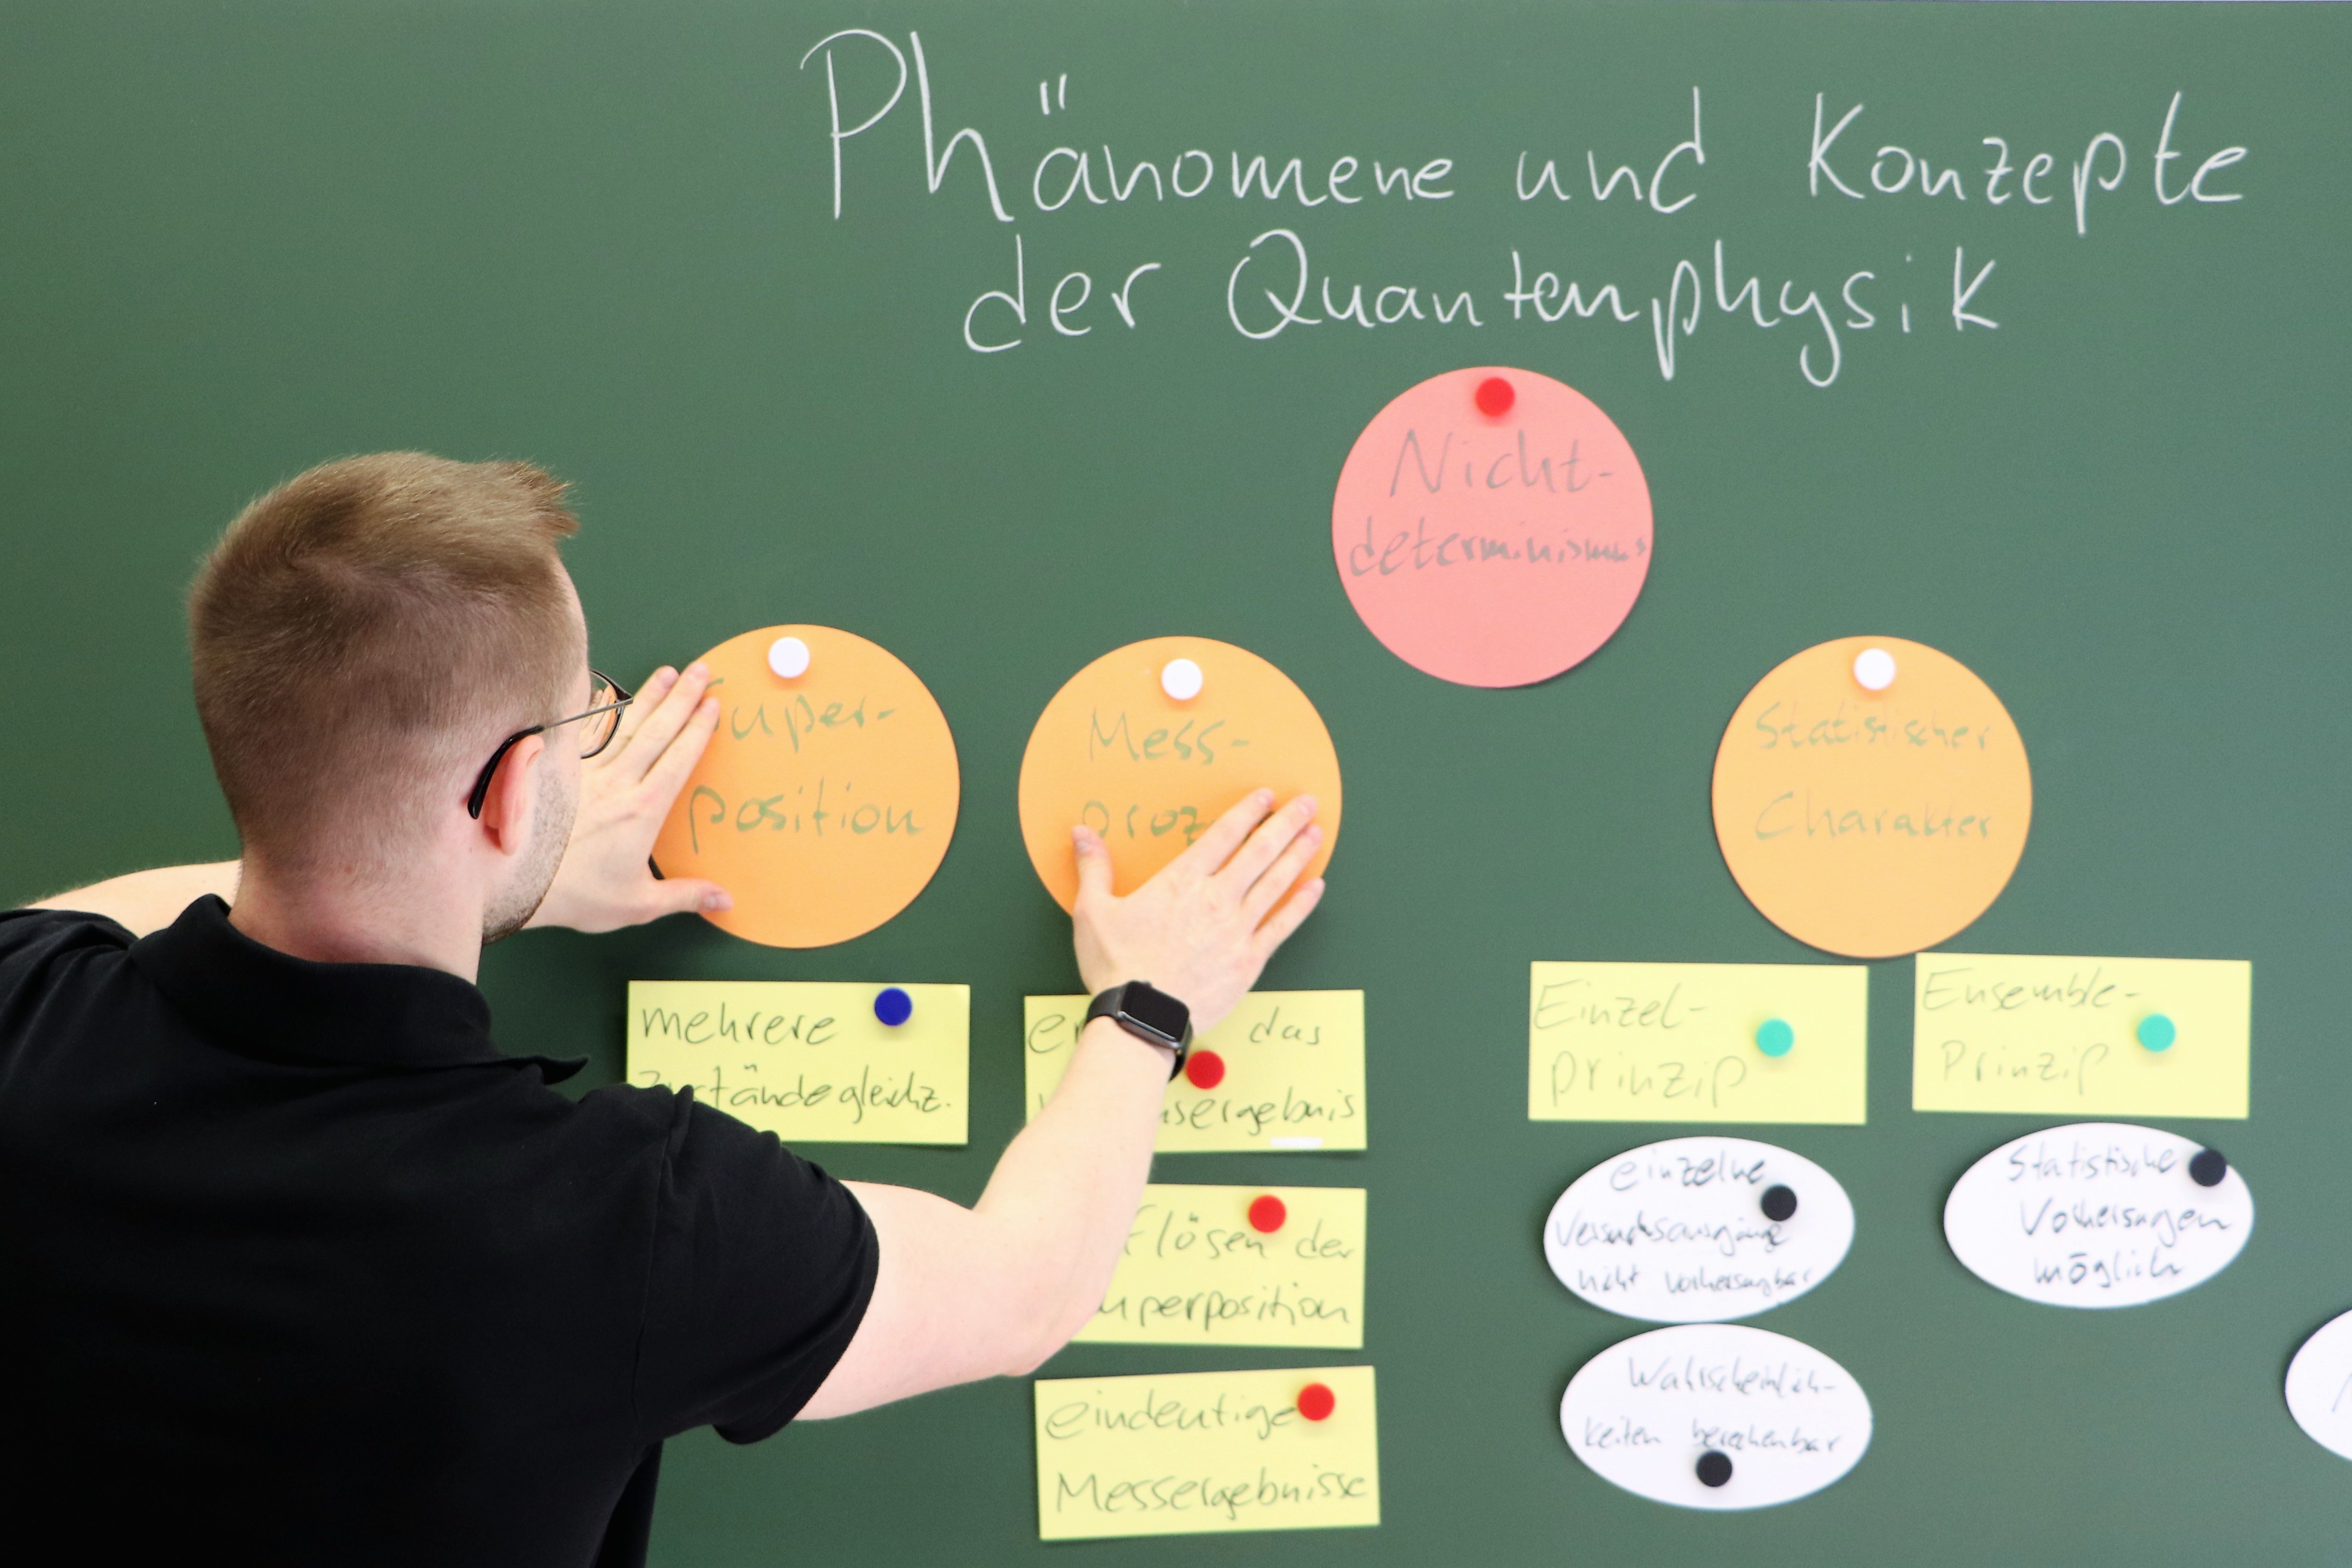 Phänomene und Konzepte
der Quantenphysik
Nicht-
determinismus
Super-
position
Mess-
Statistischer
Charakter
mehrere
Zustände gleichz.
das
der
Superposition
eindeutige
Messergebnisse
Einzel-
prinzip
einzelne
Versuchsausgänge
nicht vorhersagbar
Wahrscheinlich-
keiten berechenbar
Ensemble-
Prinzip
Statistische
Vorhersagen
möglich